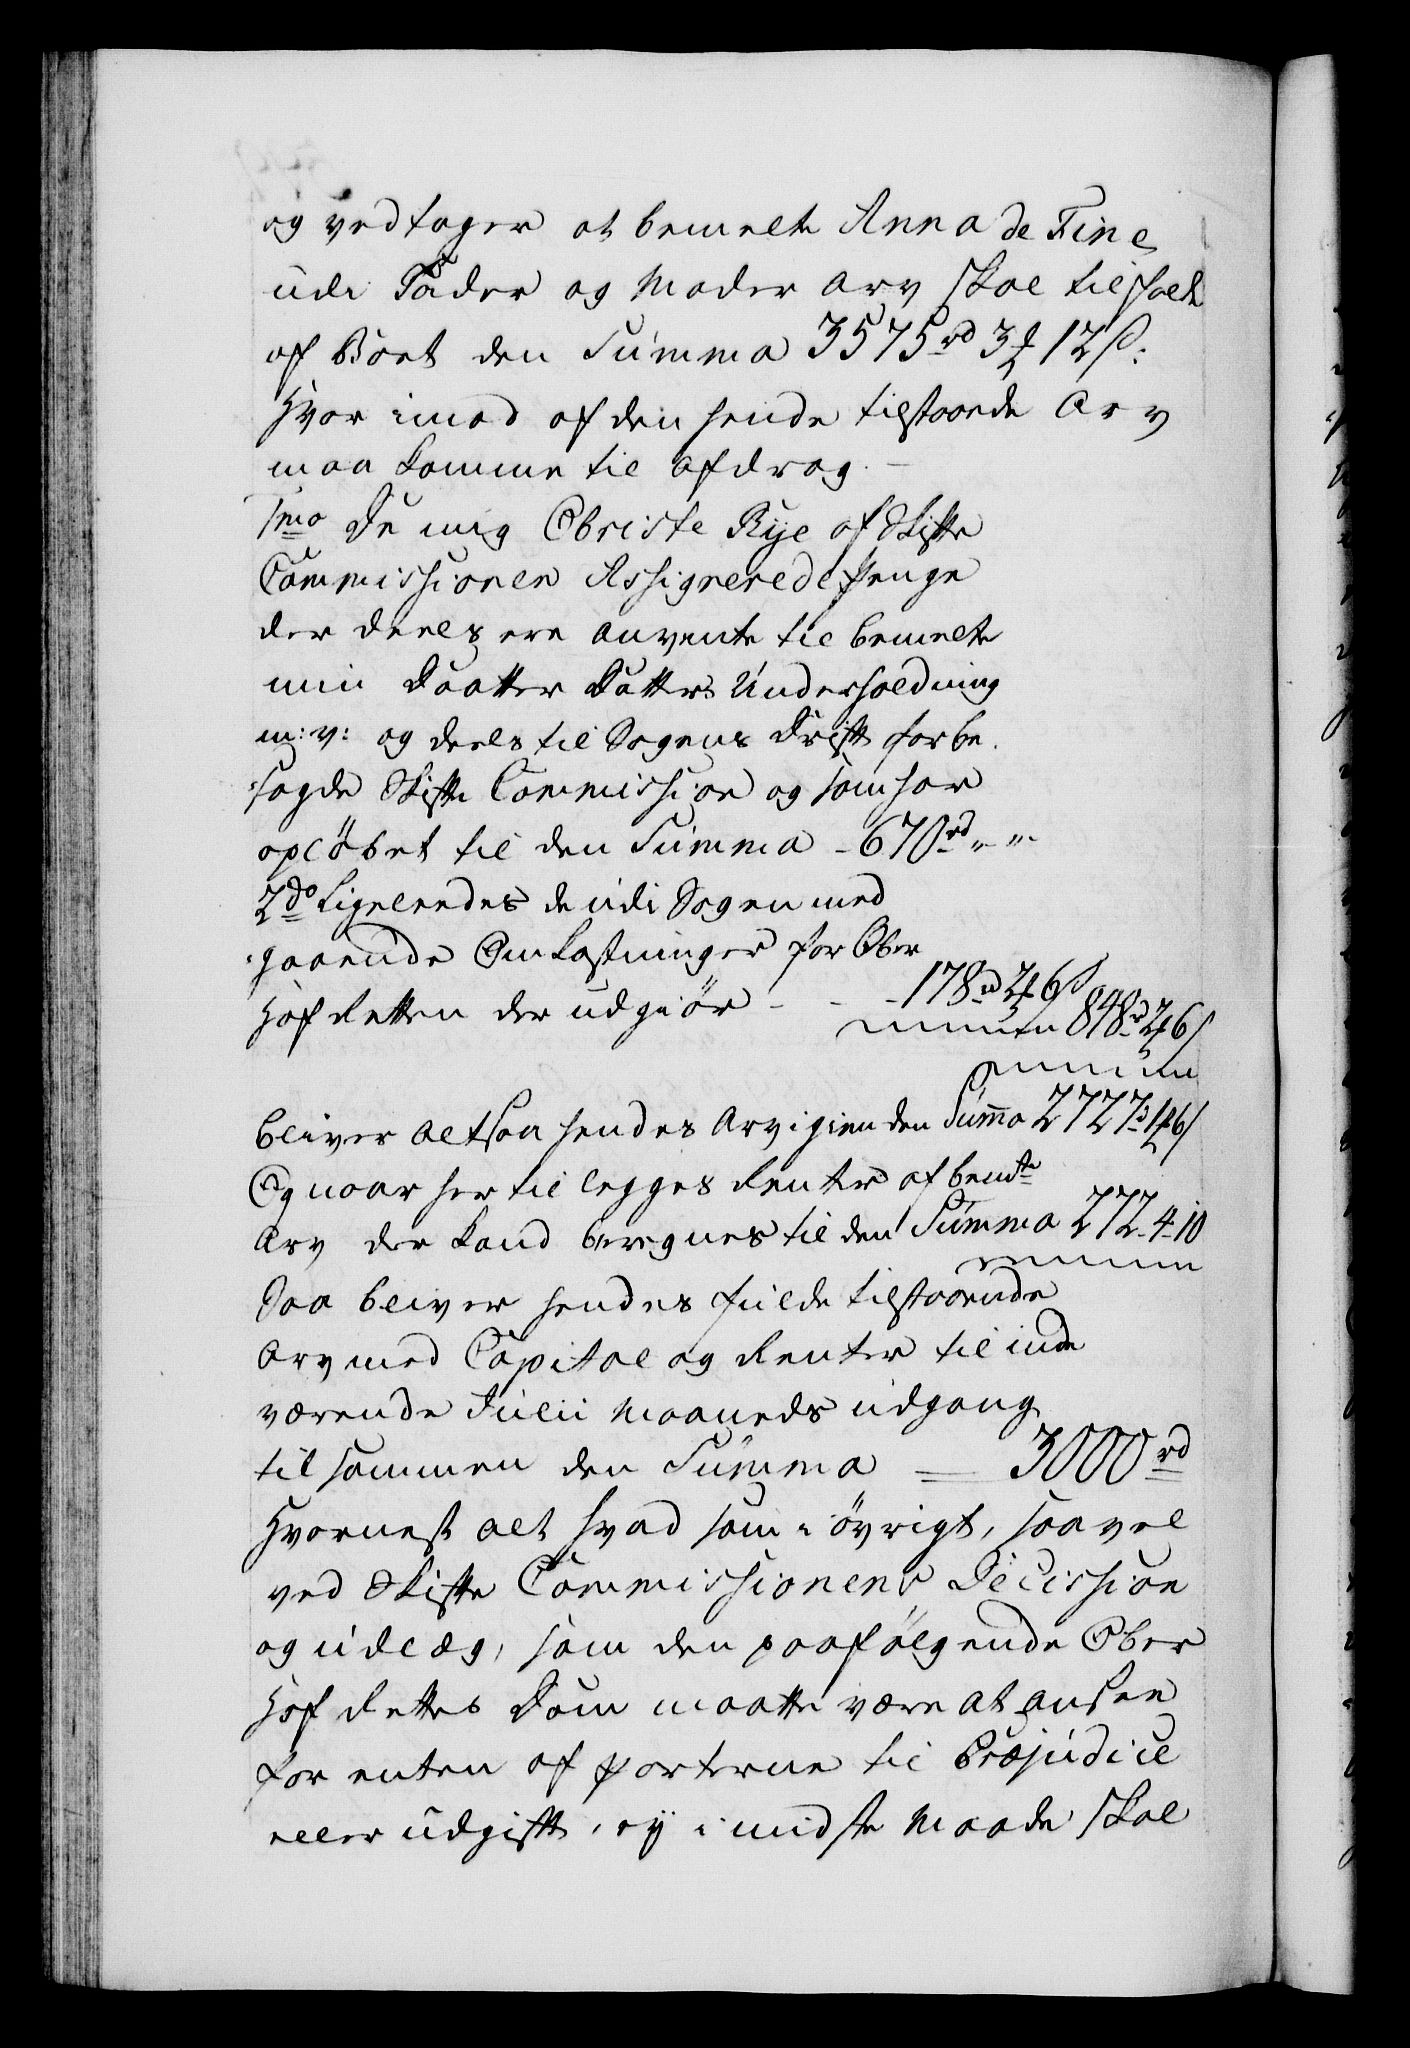 og vedtager at bemelte Anna de Fine
udi Fader og Moder Arv skal tilfalde
af Boet den Summa 3575 rd 3 ₰ 12 s:
Hvor imod af den hende tilstaaende Arv
maa komme til afdrag. —
1mo De mig Obriste Rye af Skifte
Commissionen Assignerede Penge
der deels ere anvente til bemelte
min Daatter Datters Underholdning
m: v: og deels til Sagens Drift for be-
:sagde Skifte Commission og som har
opløbet til den Summa - 670 rd „ - „ -
2do Ligeleedes de udi Sagen med
:gaaende Omkostninger for Ober
Hof Retten der udgiør - - - 178 rd 2 ₰ 6 s
848 rd 2 ₰ 6 s
bliver altsaa hendes Arv igien den Summa 2727 rd 1 ₰ 6 s
Og naar her til legges Renter af bemte
Arv der kand beregnes til den Summa 272 - 4 - 10
Saa bliver hendes fulde tilstaaende
Arv med Capital og Renter til inde
værende Julii Maaneds udgang
tilsammen den Summa = 3000 rd
Hvornest alt hvad som i øvrigt, saavel
ved Skifte Commissionens Decission
og udlæg, som den paafølgende Ober
Hof Rettes Dom maatte være at ansee
for enten af Parterne til Præjudice
eller udgift, ey i midste Maade skal